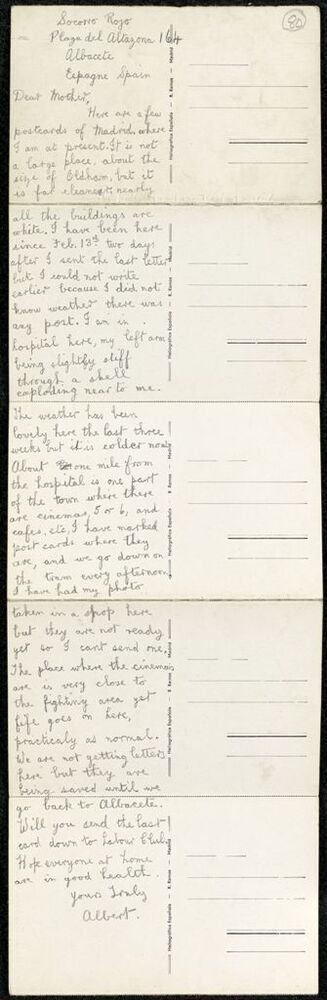 Socorro Rojo
Plaza del Altozona 164
Albacete
Espagne Spain
80
Dear Mother,
Here are a few
postcards of Madrid, where
I am at present. It is not
a large place, about the
size of Oldham, but it
is far cleaner, nearly
all the buildings are
white. I have been here
since Feb. 13th two days
after I sent the last letter
but I could not write
earlier because I did not
know weather there was
any post. I am in
hospital here, my left arm
being slightly stiff
through a shell
exploding near to me.
The weather has been
lovely here the last three
weeks but it is colder now
About one mile from
the hospital is one part
of the town where there
are cinemas, 5 or 6, and
cafes, etc, I have marked
post cards where they
are, and we go down on
the tram every afternoon
I have had my photo
taken in a shop here
but they are not ready
yet so I cant send one,
The place where the cinemas
are is very close to
the fighting area yet
life goes on here,
practicaly as normal.
We are not getting letters
here but they are
being saved until we
go back to Albacete.
Will you send the last
card down to Labour Club.
Hope everyone at home
are in good health.
Yours Truly
Albert.
Heliográfica Española - R. Ramos - Madrid
Heliográfica Española - R. Ramos - Madrid
Heliográfica Española - R. Ramos - Madrid
Heliográfica Española - R. Ramos - Madrid
Heliográfica Española - R. Ramos - Madrid